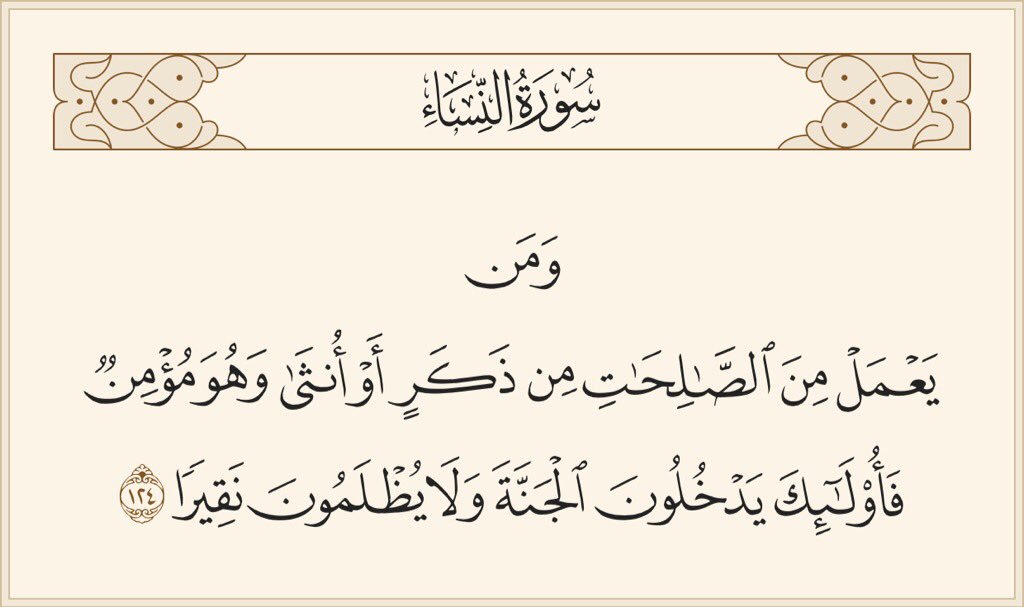 سُورَةُ النِّسَاءِ
وَمَن
يَعۡمَلۡ مِنَ ٱلصَّٰلِحَٰتِ مِن ذَكَرٍ أَوۡ أُنثَىٰ وَهُوَ مُؤۡمِنٞ
فَأُوْلَٰٓئِكَ يَدۡخُلُونَ ٱلۡجَنَّةَ وَلَا يُظۡلَمُونَ نَقِيرٗا ١٢٤